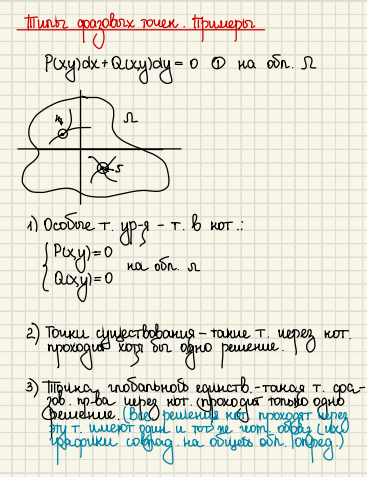 Типы фазовых точек. Примеры
P(x,y)dx + Q(x,y)dy = 0 ① на обл. Ω
Ω
S
1) Особые т. ур-я – т. в кот.:
P(x,y) = 0
Q(x,y) = 0
на обл. Ω
2) Точки существования – такие т. через кот.
проходит хотя бы одно решение.
3) Точка глобальной единств. – такая т. фа-
зов. пр-ва через кот. проходит только одно
решение (Все решения кот. проходят через
эту т. имеют один и тот же инт. образ (их
графики совпад. на общей обл. опред.)